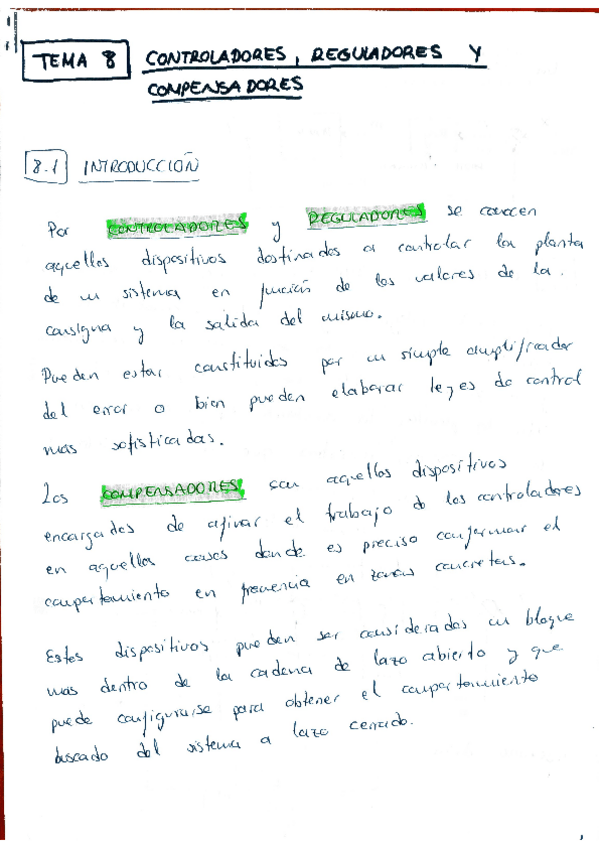 TEMA 8 CONTROLADORES, REGULADORES Y
COMPENSADORES
8.1 INTRODUCCIÓN
Por CONTROLADORES y REGULADORES se conocen
aquellos dispositivos destinados a controlar la planta
de un sistema en función de los valores de la
consigna y la salida del mismo.
Pueden estar constituidos por un simple amplificador
del error o bien pueden elaborar leyes de control
mas sofisticadas.
Los COMPENSADORES son aquellos dispositivos
encargados de afinar el trabajo de los controladores
en aquellos casos donde es preciso conformar el
comportamiento en frecuencia en zonas concretas.
Estos dispositivos pueden ser considerados un bloque
mas dentro de la cadena de lazo abierto y que
puede configurarse para obtener el comportamiento
buscado del sistema a lazo cerrado.